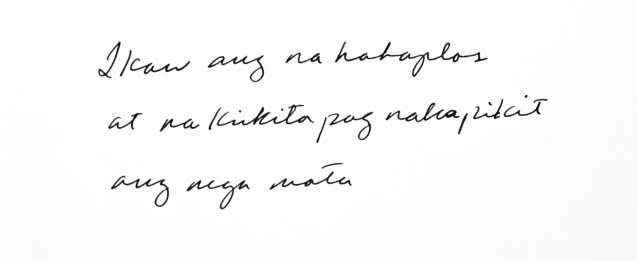 Ikaw ang nahahaplos
at nakikita pag nakapikit
ang mga mata